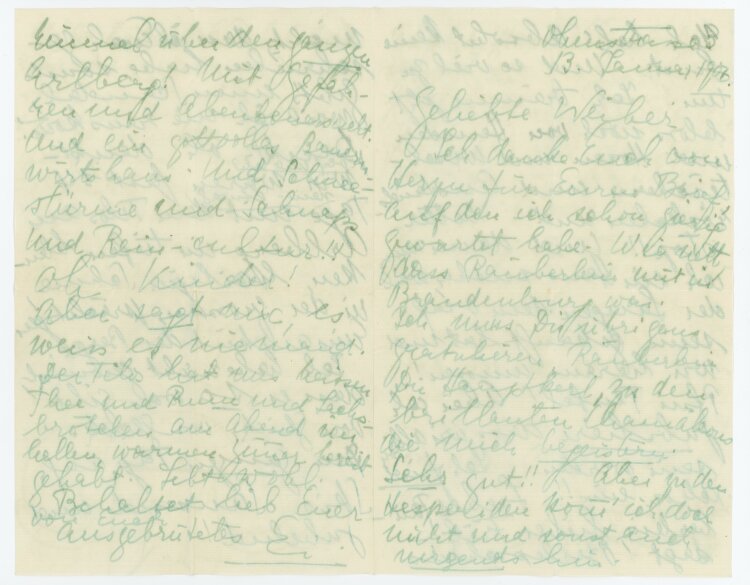 13. Januar
Geliebte Weiber
Ich danke Euch von
Herzen für Euren Brief
auf den ich schon
gewartet habe. Wie nett
dass Räuberlein mit in
Brandenburg war.
Ich muss Dir übrigens
gratulieren Räuberlein
Du Hauptkerl, zu den
brillanten
die mich begeistern.
Sehr gut!! Aber zu den
Hesperiden komm' ich doch
nicht und sonst auch
nirgends hin.
Einmal über den ganzen
Arlberg! Mit Gefah-
ren und Abenteuern
Und ein gottvolles Bauern
wirtshaus. Und Schnee-
stürme und Schnaps
und Rein-cultur!!!
Oh, Kinder!
Aber sagt nix, es
weiss es niemand.
Der hat uns heissen
Thee und Rum und Lachs
brötchen am Abend im
hellen warmen Zimmer bereit
gehabt. Lebt wohl.
Behaltet lieb Euer
von Euch
ausgebrütetes E.